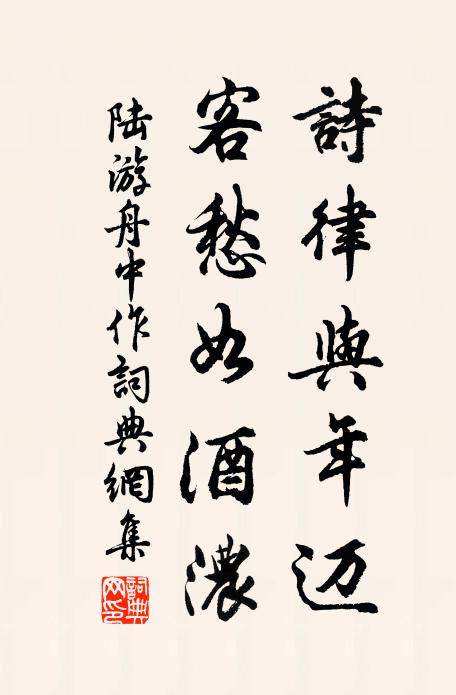 詩律與年邁
客愁如酒濃
陸游舟中作詞典網集
詞典网印